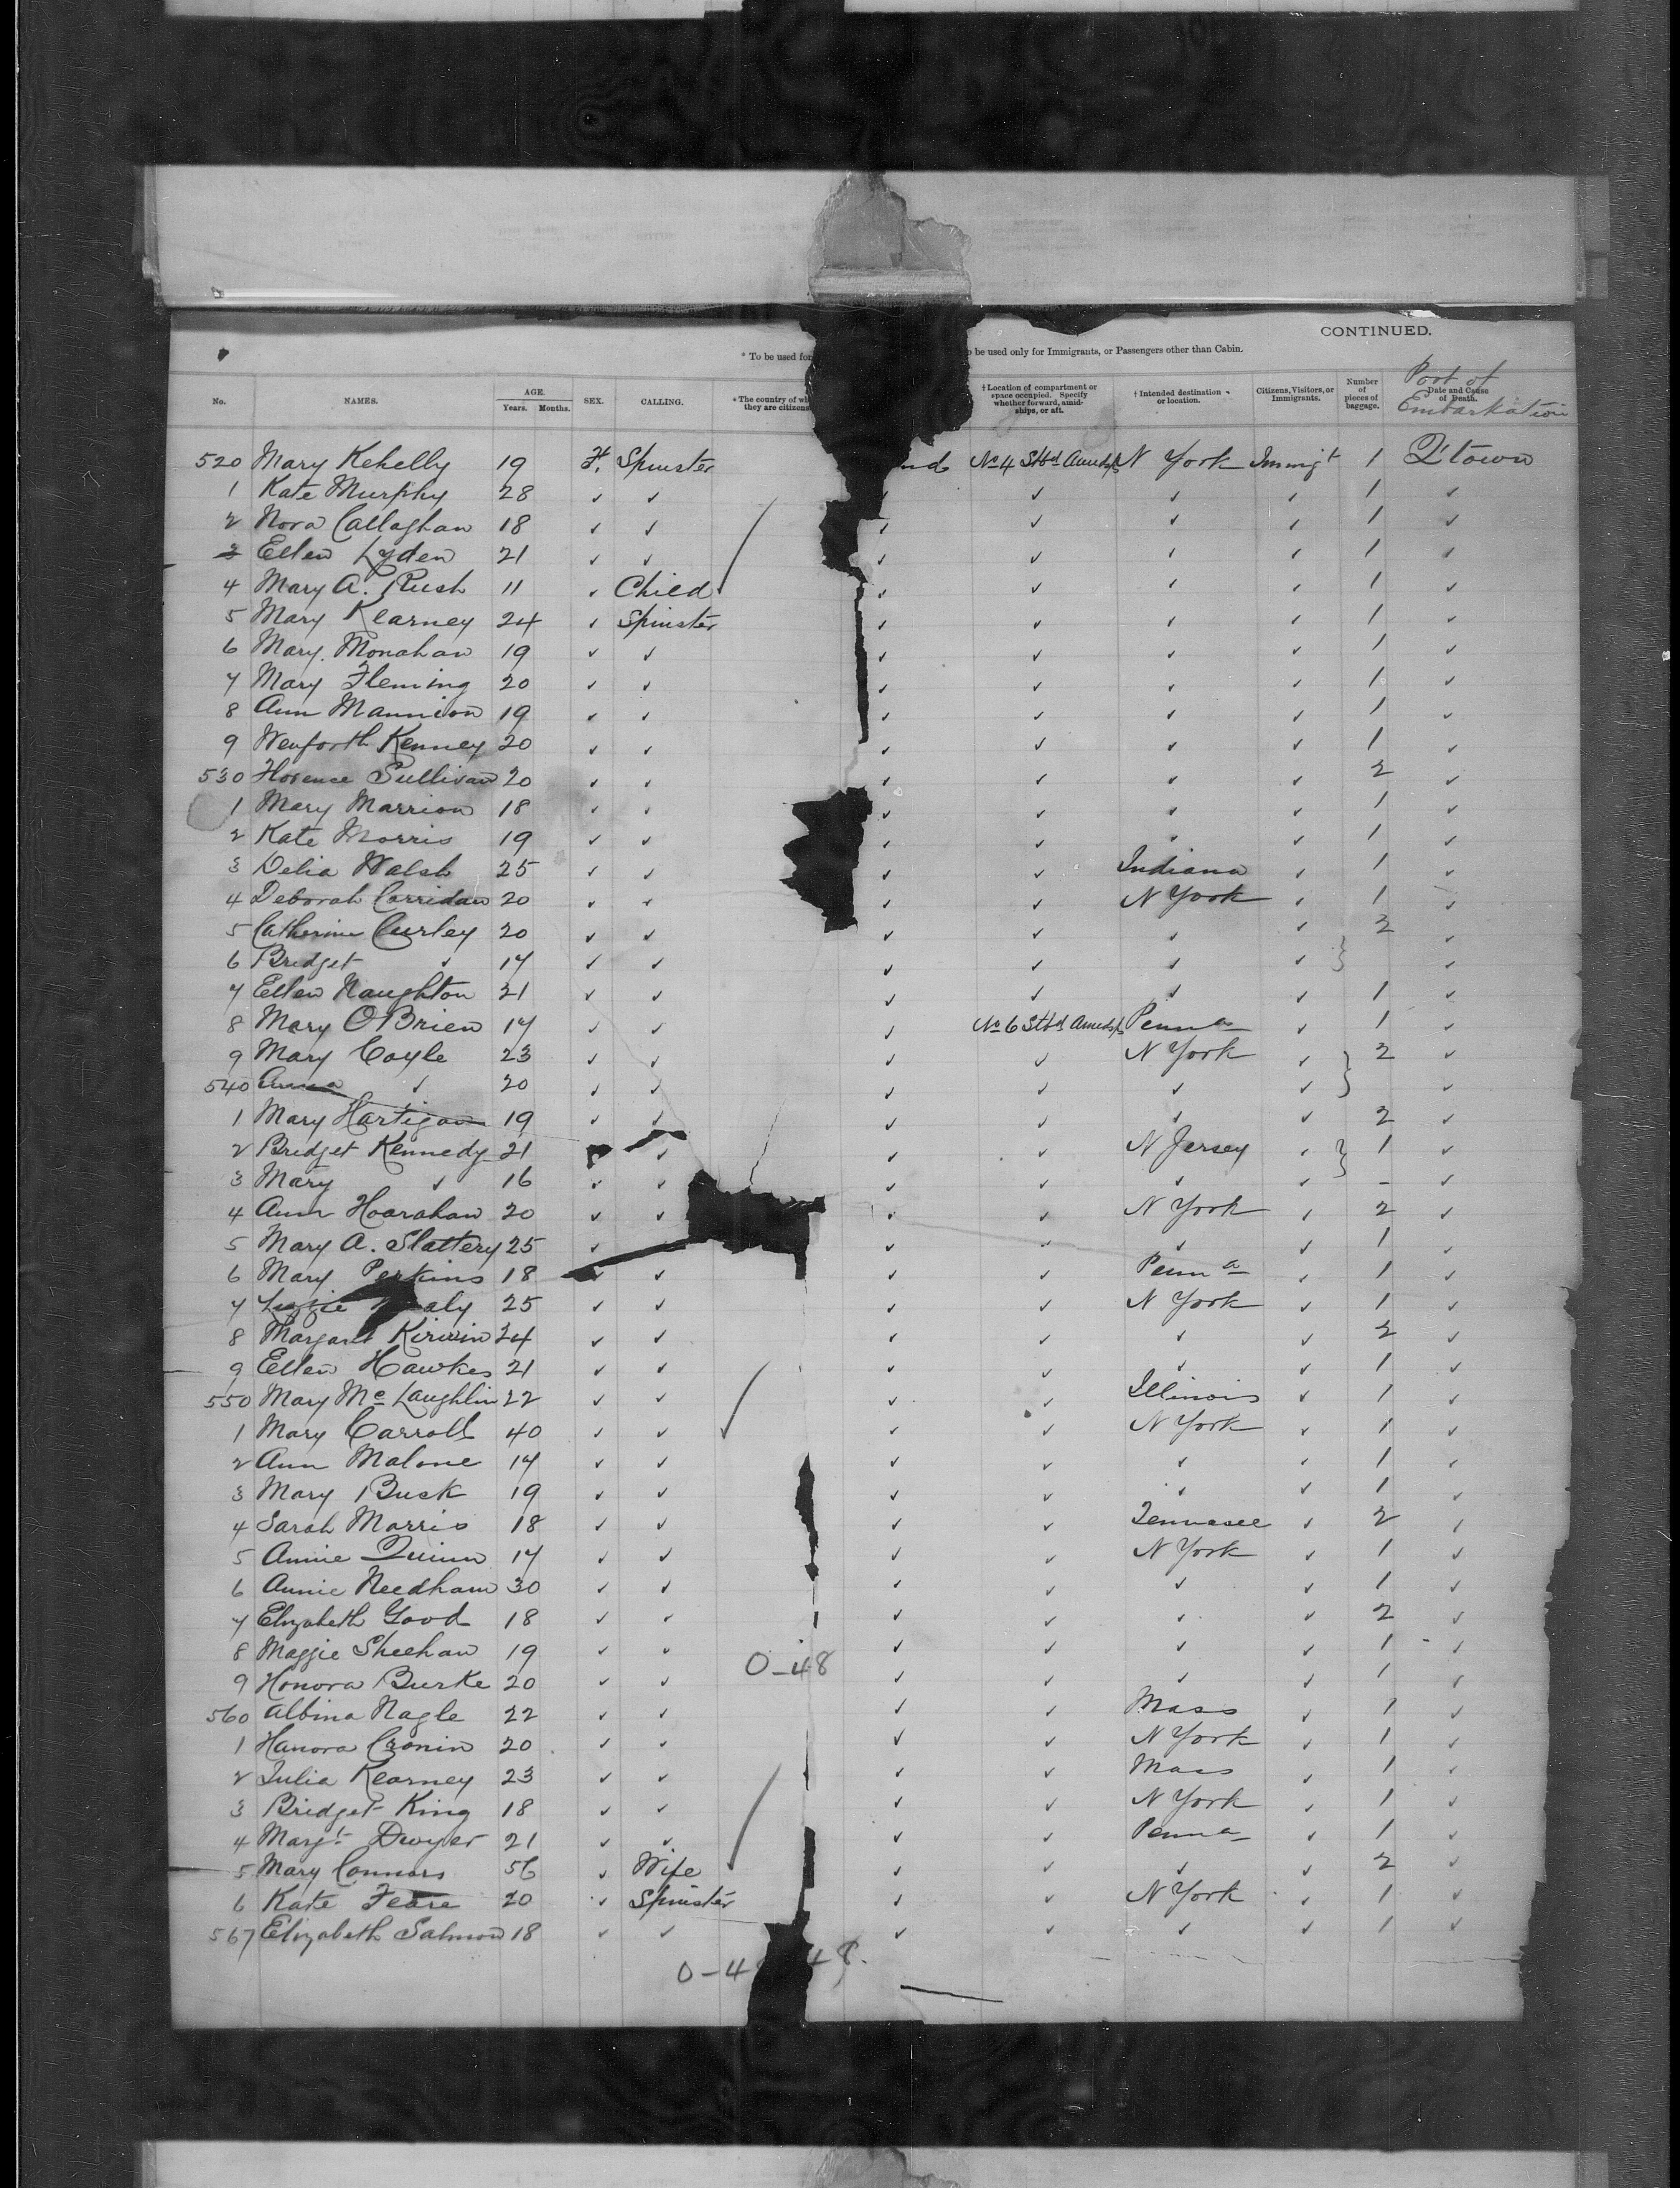 CONTINUED.
* To be used for be used only for Immigrants, or Passengers other than Cabin.
No. NAMES. AGE. Years. Months. SEX. CALLING. * The country of wh they are citizens † Location of compartment or space occupied. Specify whether forward, amidships, or aft. † Intended destination or location. Citizens, Visitors, or Immigrants. Number of pieces of baggage. Date and Cause of Death. Port of Embarkation
520 Mary Kehelly 19 F. Spinster nd No 4 Stbd Amids N York Immigt 1 Q'town
1 Kate Murphy 28 ✓ ✓ ✓ ✓ ✓ ✓ 1 ✓
2 Nora Callaghan 18 ✓ ✓ ✓ ✓ ✓ ✓ 1 ✓
3 Ellen Lyden 21 ✓ ✓ ✓ ✓ ✓ ✓ 1 ✓
4 Mary A. Rush 11 ✓ Child ✓ ✓ ✓ ✓ 1 ✓
5 Mary Kearney 24 ✓ Spinster ✓ ✓ ✓ ✓ 1 ✓
6 Mary Monahan 19 ✓ ✓ ✓ ✓ ✓ ✓ 1 ✓
7 Mary Fleming 20 ✓ ✓ ✓ ✓ ✓ ✓ 1 ✓
8 Ann Mannion 19 ✓ ✓ ✓ ✓ ✓ ✓ 1 ✓
9 Wenforth Kenney 20 ✓ ✓ ✓ ✓ ✓ ✓ 1 ✓
530 Florence Sullivan 20 ✓ ✓ ✓ ✓ ✓ ✓ 2 ✓
1 Mary Marrion 18 ✓ ✓ ✓ ✓ ✓ ✓ 1 ✓
2 Kate Morris 19 ✓ ✓ ✓ ✓ ✓ ✓ 1 ✓
3 Delia Walsh 25 ✓ ✓ ✓ ✓ Indiana ✓ 1 ✓
4 Deborah Corridan 20 ✓ ✓ ✓ ✓ N York ✓ 1 ✓
5 Catherine Curley 20 ✓ ✓ ✓ ✓ ✓ ✓ 2 ✓
6 Bridget ✓ 17 ✓ ✓ ✓ ✓ ✓ ✓ ✓
7 Ellen Naughton 21 ✓ ✓ ✓ ✓ ✓ ✓ 1 ✓
8 Mary O'Brien 17 ✓ ✓ ✓ No 6 Stbd Amids Penna ✓ 1 ✓
9 Mary Coyle 23 ✓ ✓ ✓ ✓ N York ✓ 2 ✓
540 Anna ✓ 20 ✓ ✓ ✓ ✓ ✓ ✓ ✓
1 Mary Hartigan 19 ✓ ✓ ✓ ✓ ✓ ✓ 2 ✓
2 Bridget Kennedy 21 ✓ ✓ ✓ N Jersey ✓ 1 ✓
3 Mary ✓ 16 ✓ ✓ ✓ ✓ ✓ ✓ - ✓
4 Ann Hoarahan 20 ✓ ✓ ✓ ✓ N York ✓ 2 ✓
5 Mary A. Slattery 25 ✓ ✓ ✓ ✓ ✓ 1 ✓
6 Mary Perkins 18 ✓ ✓ ✓ ✓ Penna ✓ 1 ✓
7 Lizzie aly 25 ✓ ✓ ✓ ✓ N York ✓ 1 ✓
8 Margaret Kirwin 24 ✓ ✓ ✓ ✓ ✓ ✓ 2 ✓
9 Ellen Hawkes 21 ✓ ✓ ✓ ✓ ✓ ✓ 1 ✓
550 Mary McLaughlin 22 ✓ ✓ ✓ ✓ Illinois ✓ 1 ✓
1 Mary Carroll 40 ✓ ✓ ✓ ✓ N York ✓ 1 ✓
2 Ann Malone 17 ✓ ✓ ✓ ✓ ✓ ✓ 1 ✓
3 Mary Busk 19 ✓ ✓ ✓ ✓ ✓ ✓ 1 ✓
4 Sarah Morris 18 ✓ ✓ ✓ ✓ Tennasee ✓ 2 ✓
5 Annie Quinn 17 ✓ ✓ ✓ ✓ N York ✓ 1 ✓
6 Annie Needham 30 ✓ ✓ ✓ ✓ ✓ ✓ 1 ✓
7 Elizabeth Good 18 ✓ ✓ ✓ ✓ ✓ ✓ 2 ✓
8 Maggie Sheehan 19 ✓ ✓ ✓ ✓ ✓ ✓ 1 ✓
0-48
9 Honora Burke 20 ✓ ✓ ✓ ✓ ✓ ✓ 1 ✓
560 Albina Nagle 22 ✓ ✓ ✓ ✓ Mass ✓ 1 ✓
1 Hanora Cronin 20 ✓ ✓ ✓ ✓ N York ✓ 1 ✓
2 Julia Kearney 23 ✓ ✓ ✓ ✓ Mass ✓ 1 ✓
3 Bridget King 18 ✓ ✓ ✓ ✓ N York ✓ 1 ✓
4 Margt Dwyer 21 ✓ ✓ ✓ ✓ Penna ✓ 1 ✓
5 Mary Connors 56 ✓ Wife ✓ ✓ ✓ ✓ 2 ✓
6 Kate Feare 20 ✓ Spinster ✓ ✓ N York ✓ 1 ✓
567 Elizabeth Salmon 18 ✓ ✓ ✓ ✓ ✓ ✓ 1 ✓
0-4 48.